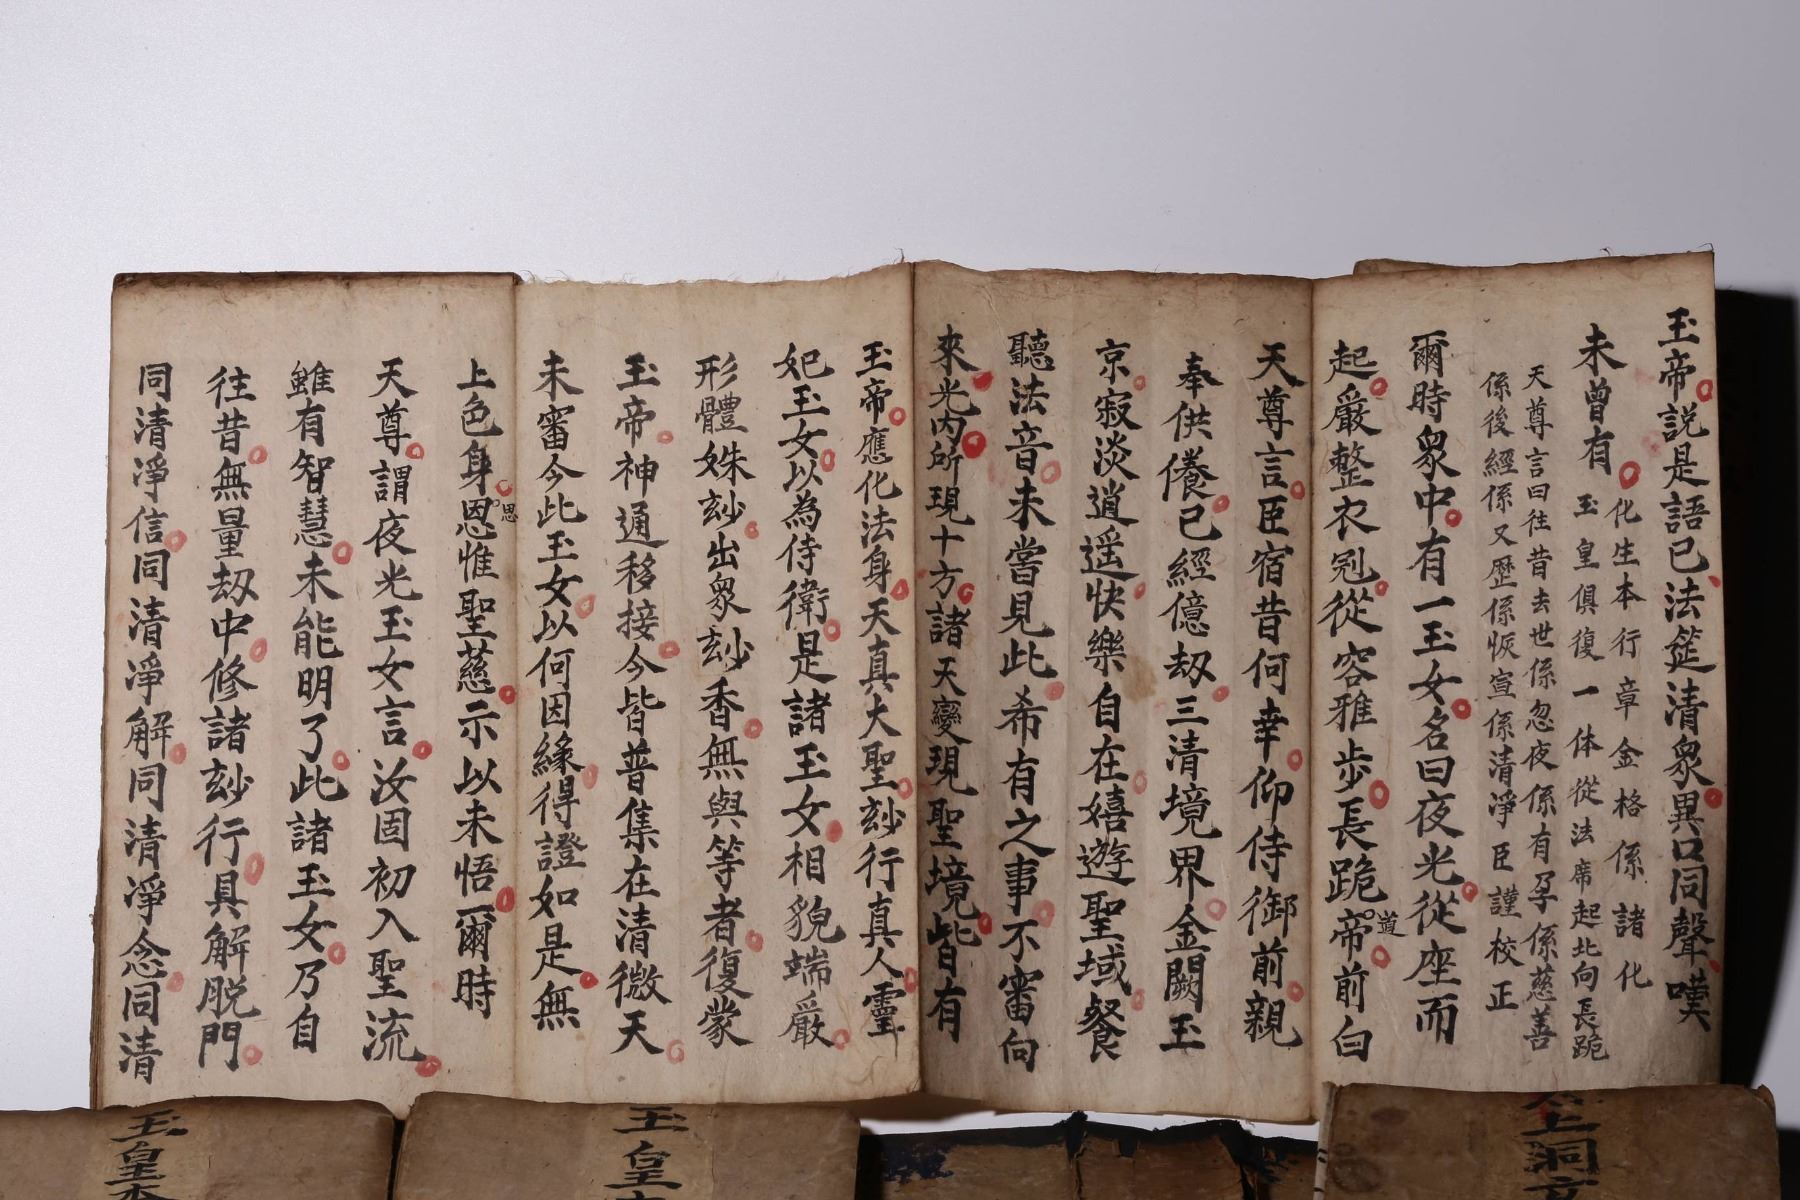 玉帝說是語已法筵清眾異口同聲嘆
未曾有
化生本行章金格係諸化
玉皇俱復一体從法席起北向長跪
天尊言曰往昔去世係忽夜係有孕係慈善
係後經係又歷係恢宣係清淨臣謹校正
爾時眾中有一玉女名曰夜光從座而
起嚴整衣冠從容雅步長跪帝前白
道
天尊言臣宿昔何幸仰侍御前親
奉供養已經億劫三清境界金闕玉
京寂淡逍遥快樂自在嬉遊聖域餐
聽法音未嘗見此希有之事不審向
來光内所現十方諸天變現聖境皆有
玉帝應化法身天真大聖玅行真人靈
妃玉女以為侍衛是諸玉女相貌端嚴
形體姝玅出眾玅香無與等者復蒙
玉帝神通移接今皆普集在清微天
未審今此玉女以何因緣得證如是無
上色身恩惟聖慈示以未悟爾時
思
天尊謂夜光玉女言汝固初入聖流
雖有智慧未能明了此諸玉女乃自
往昔無量劫中修諸玅行具解脫門
同清淨信同清淨解同清淨念同清
玉皇
玉皇
太上洞玄